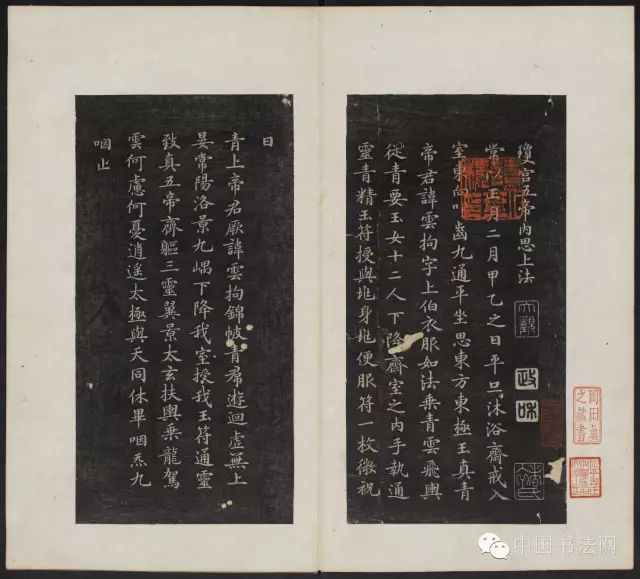 瓊宮五帝內思上法
常以正月二月甲乙之日平旦沐浴齋戒入
室東向叩齒九通平坐思東方東極玉真青
帝君諱雲拘字上伯衣服如法乘青雲飛輿
從青要玉女十二人下降齋室之內手執通
靈青精玉符授與兆身兆便服符一枚微祝
大觀
政和
岡田真
之藏書
曰
青上帝君厥諱雲拘錦帔青帬遊迴虛無上
晏常陽洛景九嵎下降我室授我玉符通靈
致真五帝齊軀三靈翼景太玄扶輿乘龍駕
雲何慮何憂逍遙太極與天同休畢咽炁九
咽止
中国书法网